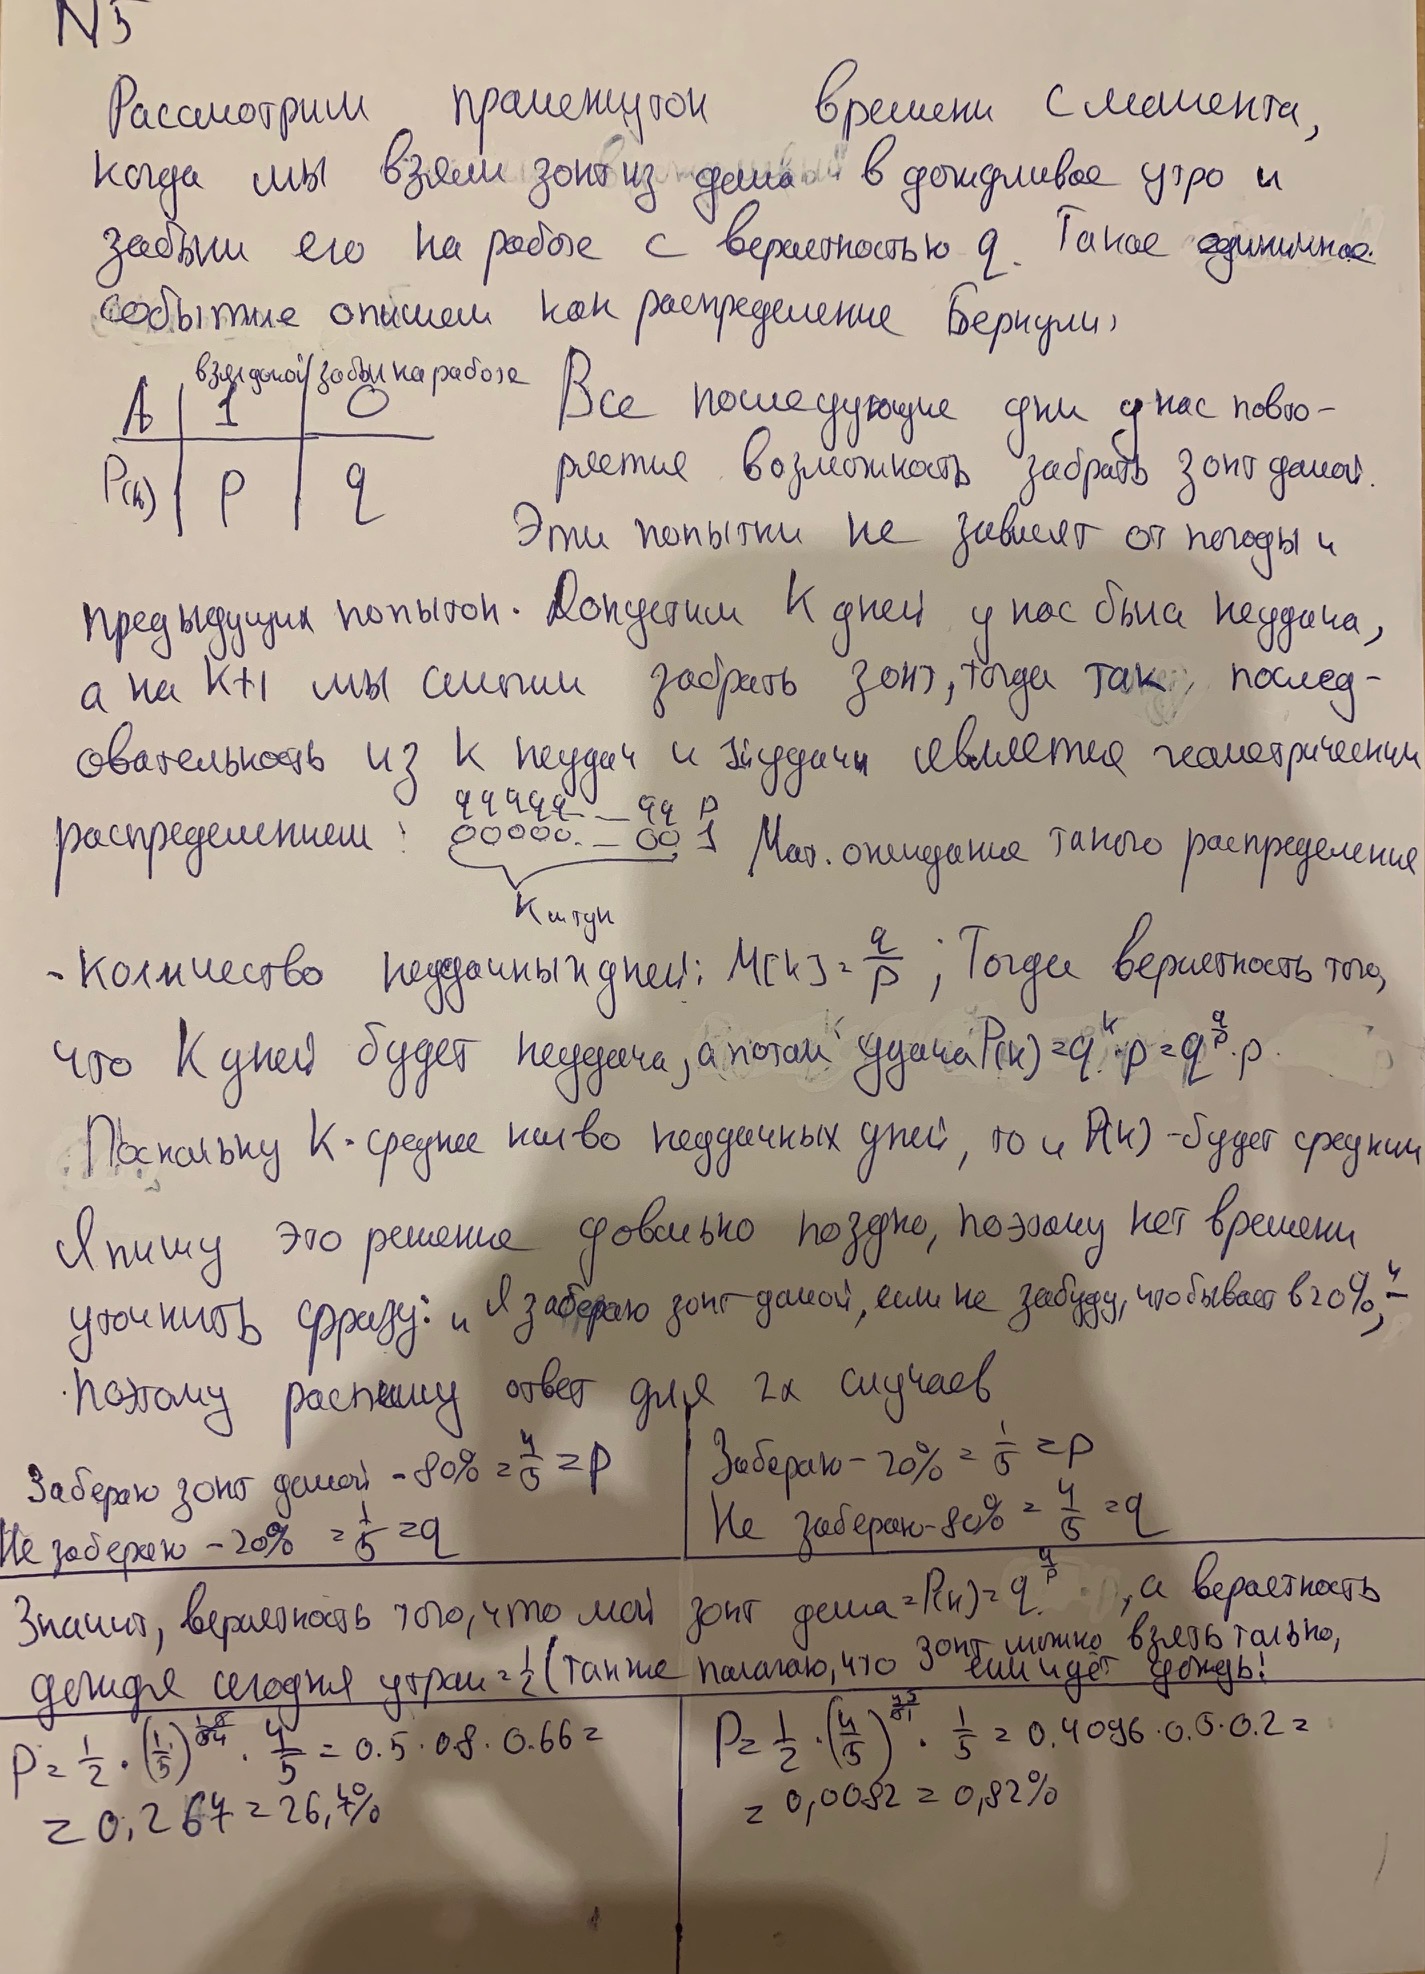 N5
Рассмотрим промежуток времени с момента,
когда мы взяли зонт из дома в дождливое утро и
забыли его на работе с вероятностью q. Такое единичное
событие опишем как распределение Бернули:
взял домой/забыл на работе
A | 1 | 0
P(k) | p | q
Все последующие дни у нас повто-
ряется возможность забрать зонт домой.
Эти попытки не зависят от погоды и
предыдущих попыток. Допустим K дней у нас была неудача,
а на K+1 мы смогли забрать зонт, тогда так послед-
овательность из K неудач и 1й удачи является геометрическим
распределением:
qqqqq... qq p
00000... 00 1
K штук
Мат. ожидание такого распределение
- количество неудачных дней: M[k] = q/p ; Тогда вероятность того,
что K дней будет неудача, а потом удача P(k) = q^k · p = q^(q/p) · p.
Поскольку K - среднее кол-во неудачных дней, то и P(k) - будет средним
Я пишу это решение довольно поздно, поэтому нет времени
уточнить фразу: "Я забераю зонт домой, если не забуду, что бывает в 20%"
поэтому распишу ответ для 2х случаев
Забераю зонт домой - 80% = 4/5 = p
Не забераю - 20% = 1/5 = q
Забераю - 20% = 1/5 = p
Не забераю - 80% = 4/5 = q
Значит, вероятность того, что мой зонт дома = P(k) = q^(q/p) · p, а вероятность
дождя сегодня утром = 1/2 (также полагаю, что зонт можно взять только,
если идёт дождь!
P = 1/2 · (1/5) · 4/5 = 0.5 · 0.8 · 0.66 =
= 0,267 = 26,7%
P = 1/2 · (4/5) · 1/5 = 0.4096 · 0.5 · 0.2 =
= 0,0082 = 0,82%